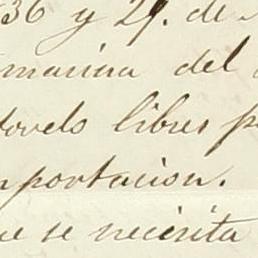 36 y 29. de
marina del
libres
portacion.
se necesita